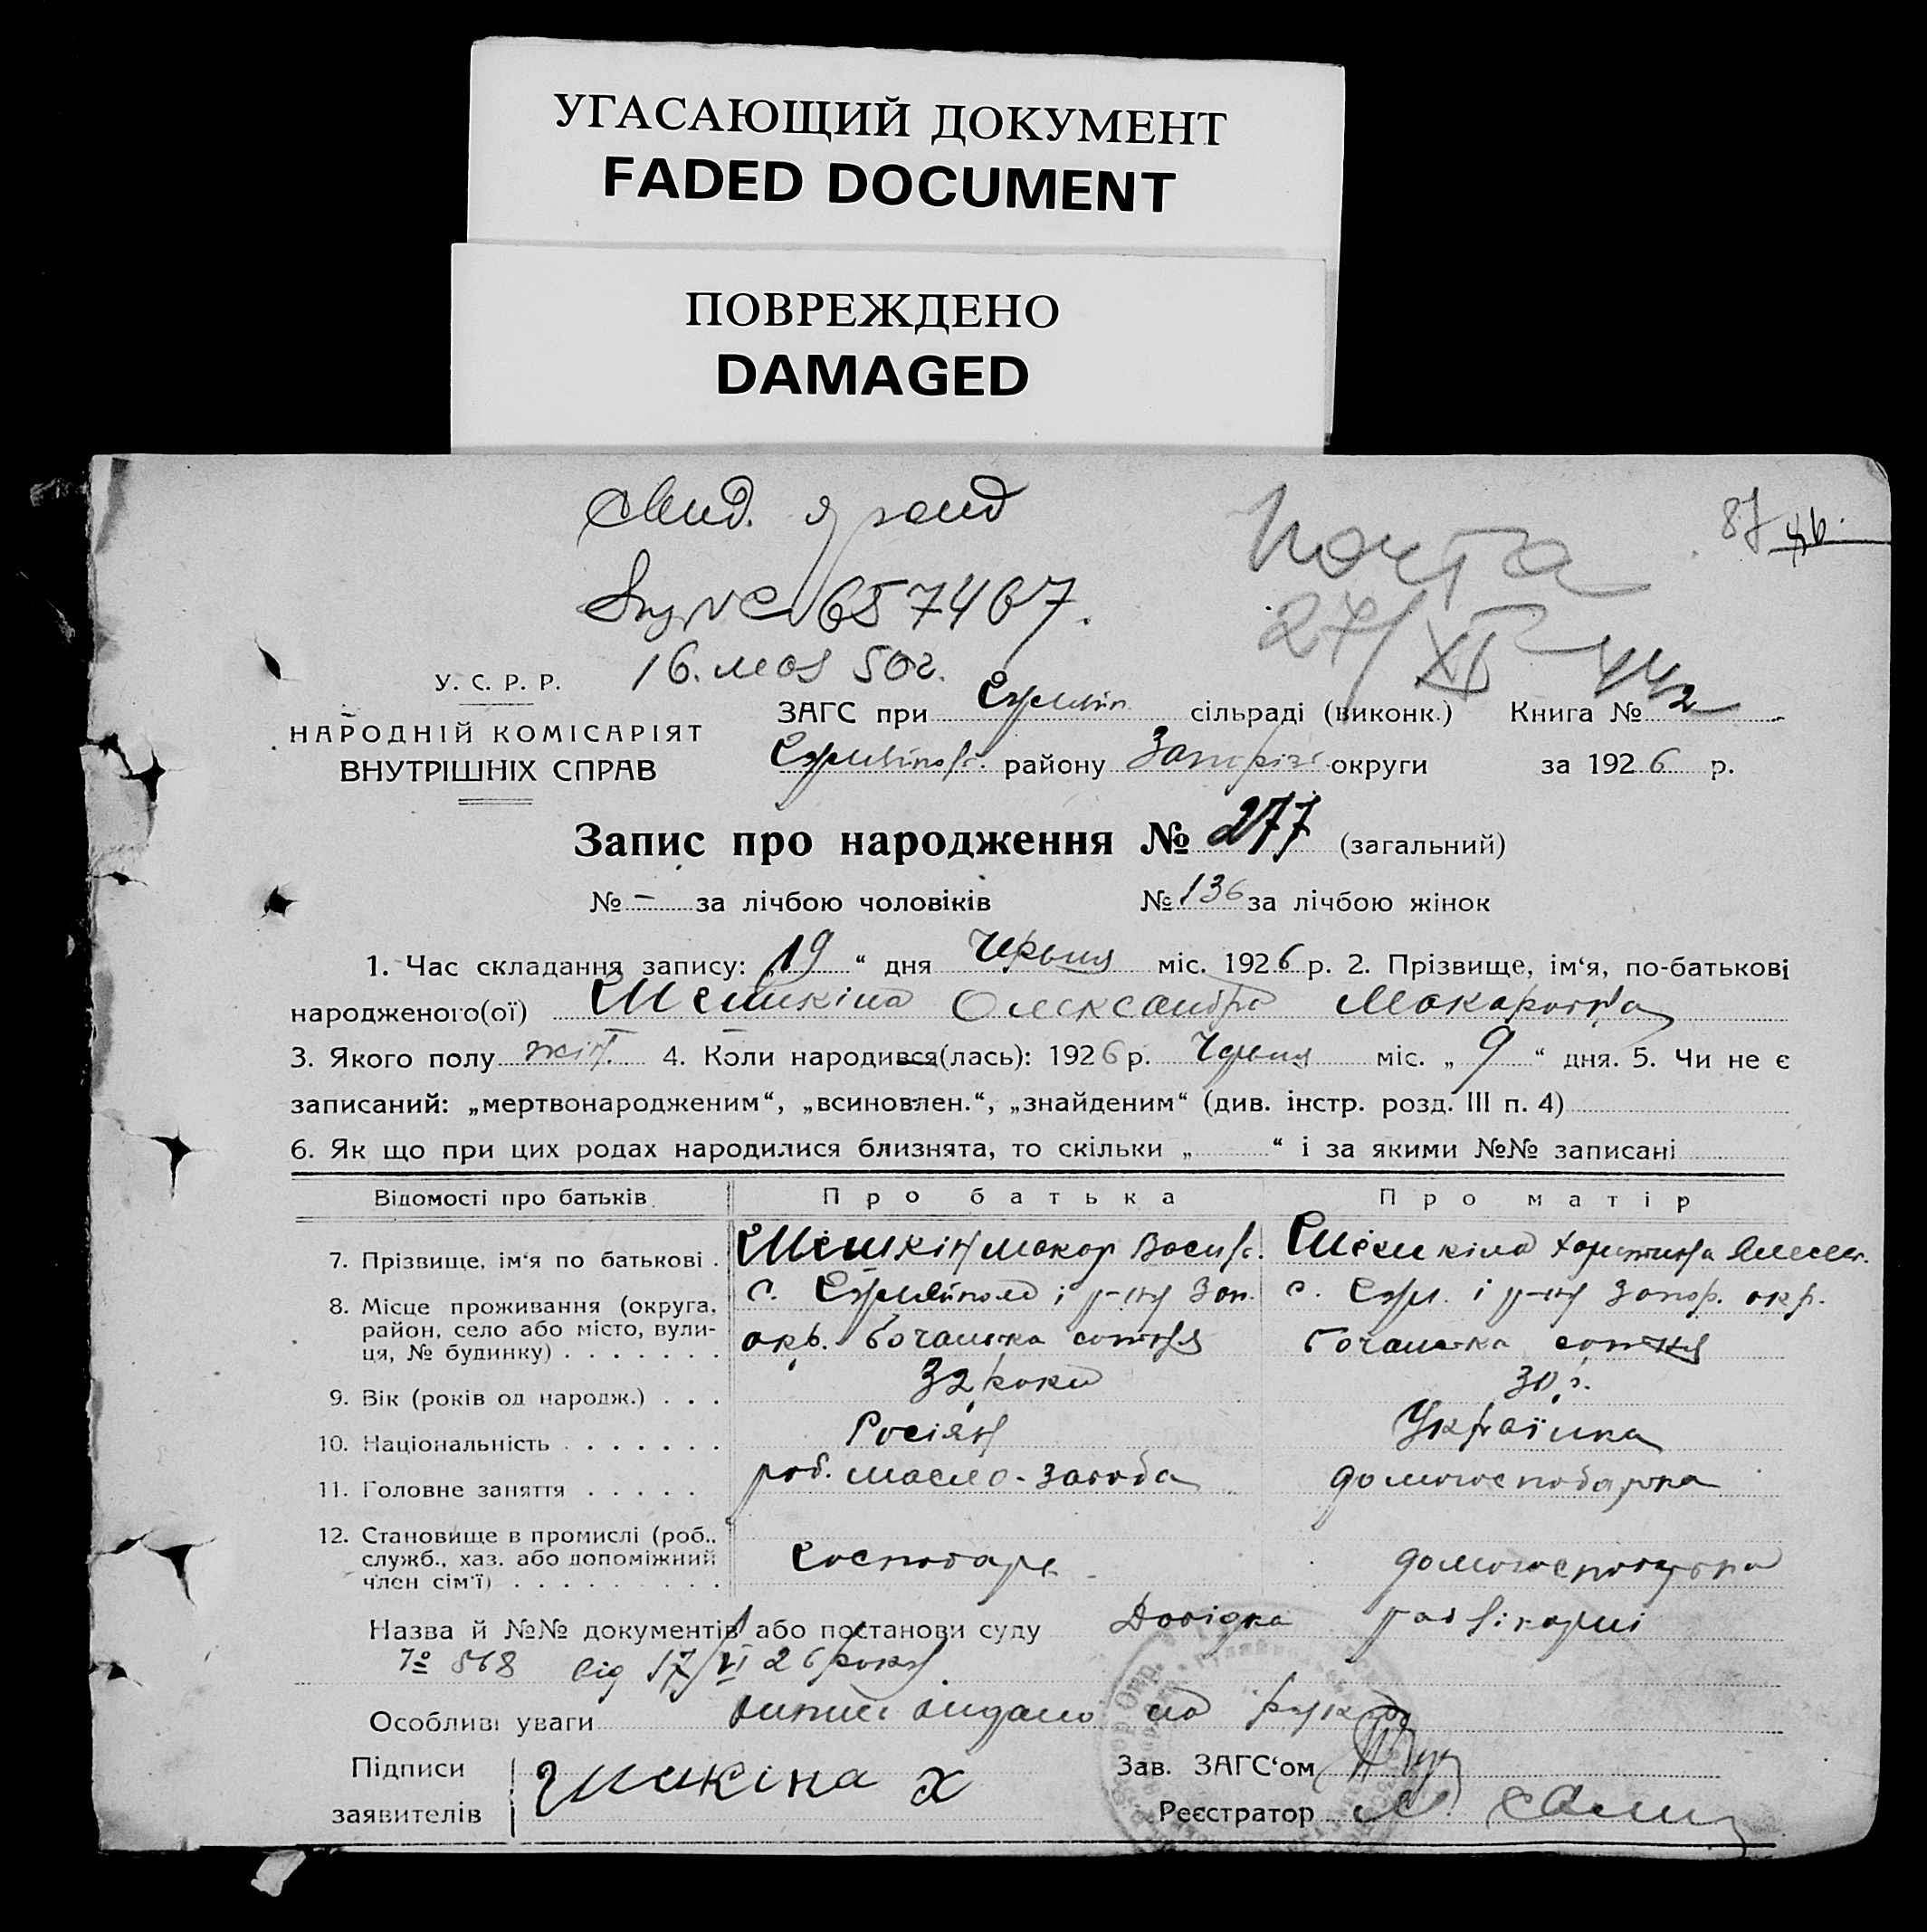 УГАСАЮЩИЙ ДОКУМЕНТ
FADED DOCUMENT
ПОВРЕЖДЕНО
DAMAGED
почта
27/XI-44
87
657467.
16. мая 50г.
У. С. Р. Р.
НАРОДНІЙ КОМІСАРІЯТ
ВНУТРІШНІХ СПРАВ
ЗАГС при сільраді (виконк.) Книга № 2
району Запоріз округи за 1926 р.
Запис про народження № 277 (загальний)
№ – за лічбою чоловіків № 136 за лічбою жінок
1. Час складання запису: „19“ дня Червня міс. 1926 р. 2. Прізвище, ім‘я, по-батькові
народженого(ої) Олександра Макаровна
3. Якого полу жін. 4. Коли народився(лась): 1926 р. Червня міс. „9“ дня. 5. Чи не є
записаний: „мертвонародженим“, „всиновлен.“, „знайденим“ (див. інстр. розд. III п. 4)
6. Як що при цих родах народилися близнята, то скільки „ “ і за якими №№ записані
Відомості про батьків Про батька Про матір
7. Прізвище, ім‘я по батькові . Макар
8. Місце проживання (округа,
район, село або місто, вули-
ця, № будинку) . . . . . . .
с. і р-ну Зап. с. і р-ну Запор. окр.
окр. сотня сотня
9. Вік (років од народж.) . . . 32 роки 30 р.
10. Національність . . . . . . . Росіян Українка
11. Головне заняття . . . . . роб. масло-завода домогосподарка
12. Становище в промислі (роб.,
служб., хаз. або допоміжний
член сім‘ї) . . . . . . . . .
Господарь домогосподарка
Назва й №№ документів або постанови суду Довідка
№ 568 від 17/VI 26 року.
Особливі уваги випис видано на руки
Підписи
заявителів
Зав. ЗАГС‘ом
Реєстратор